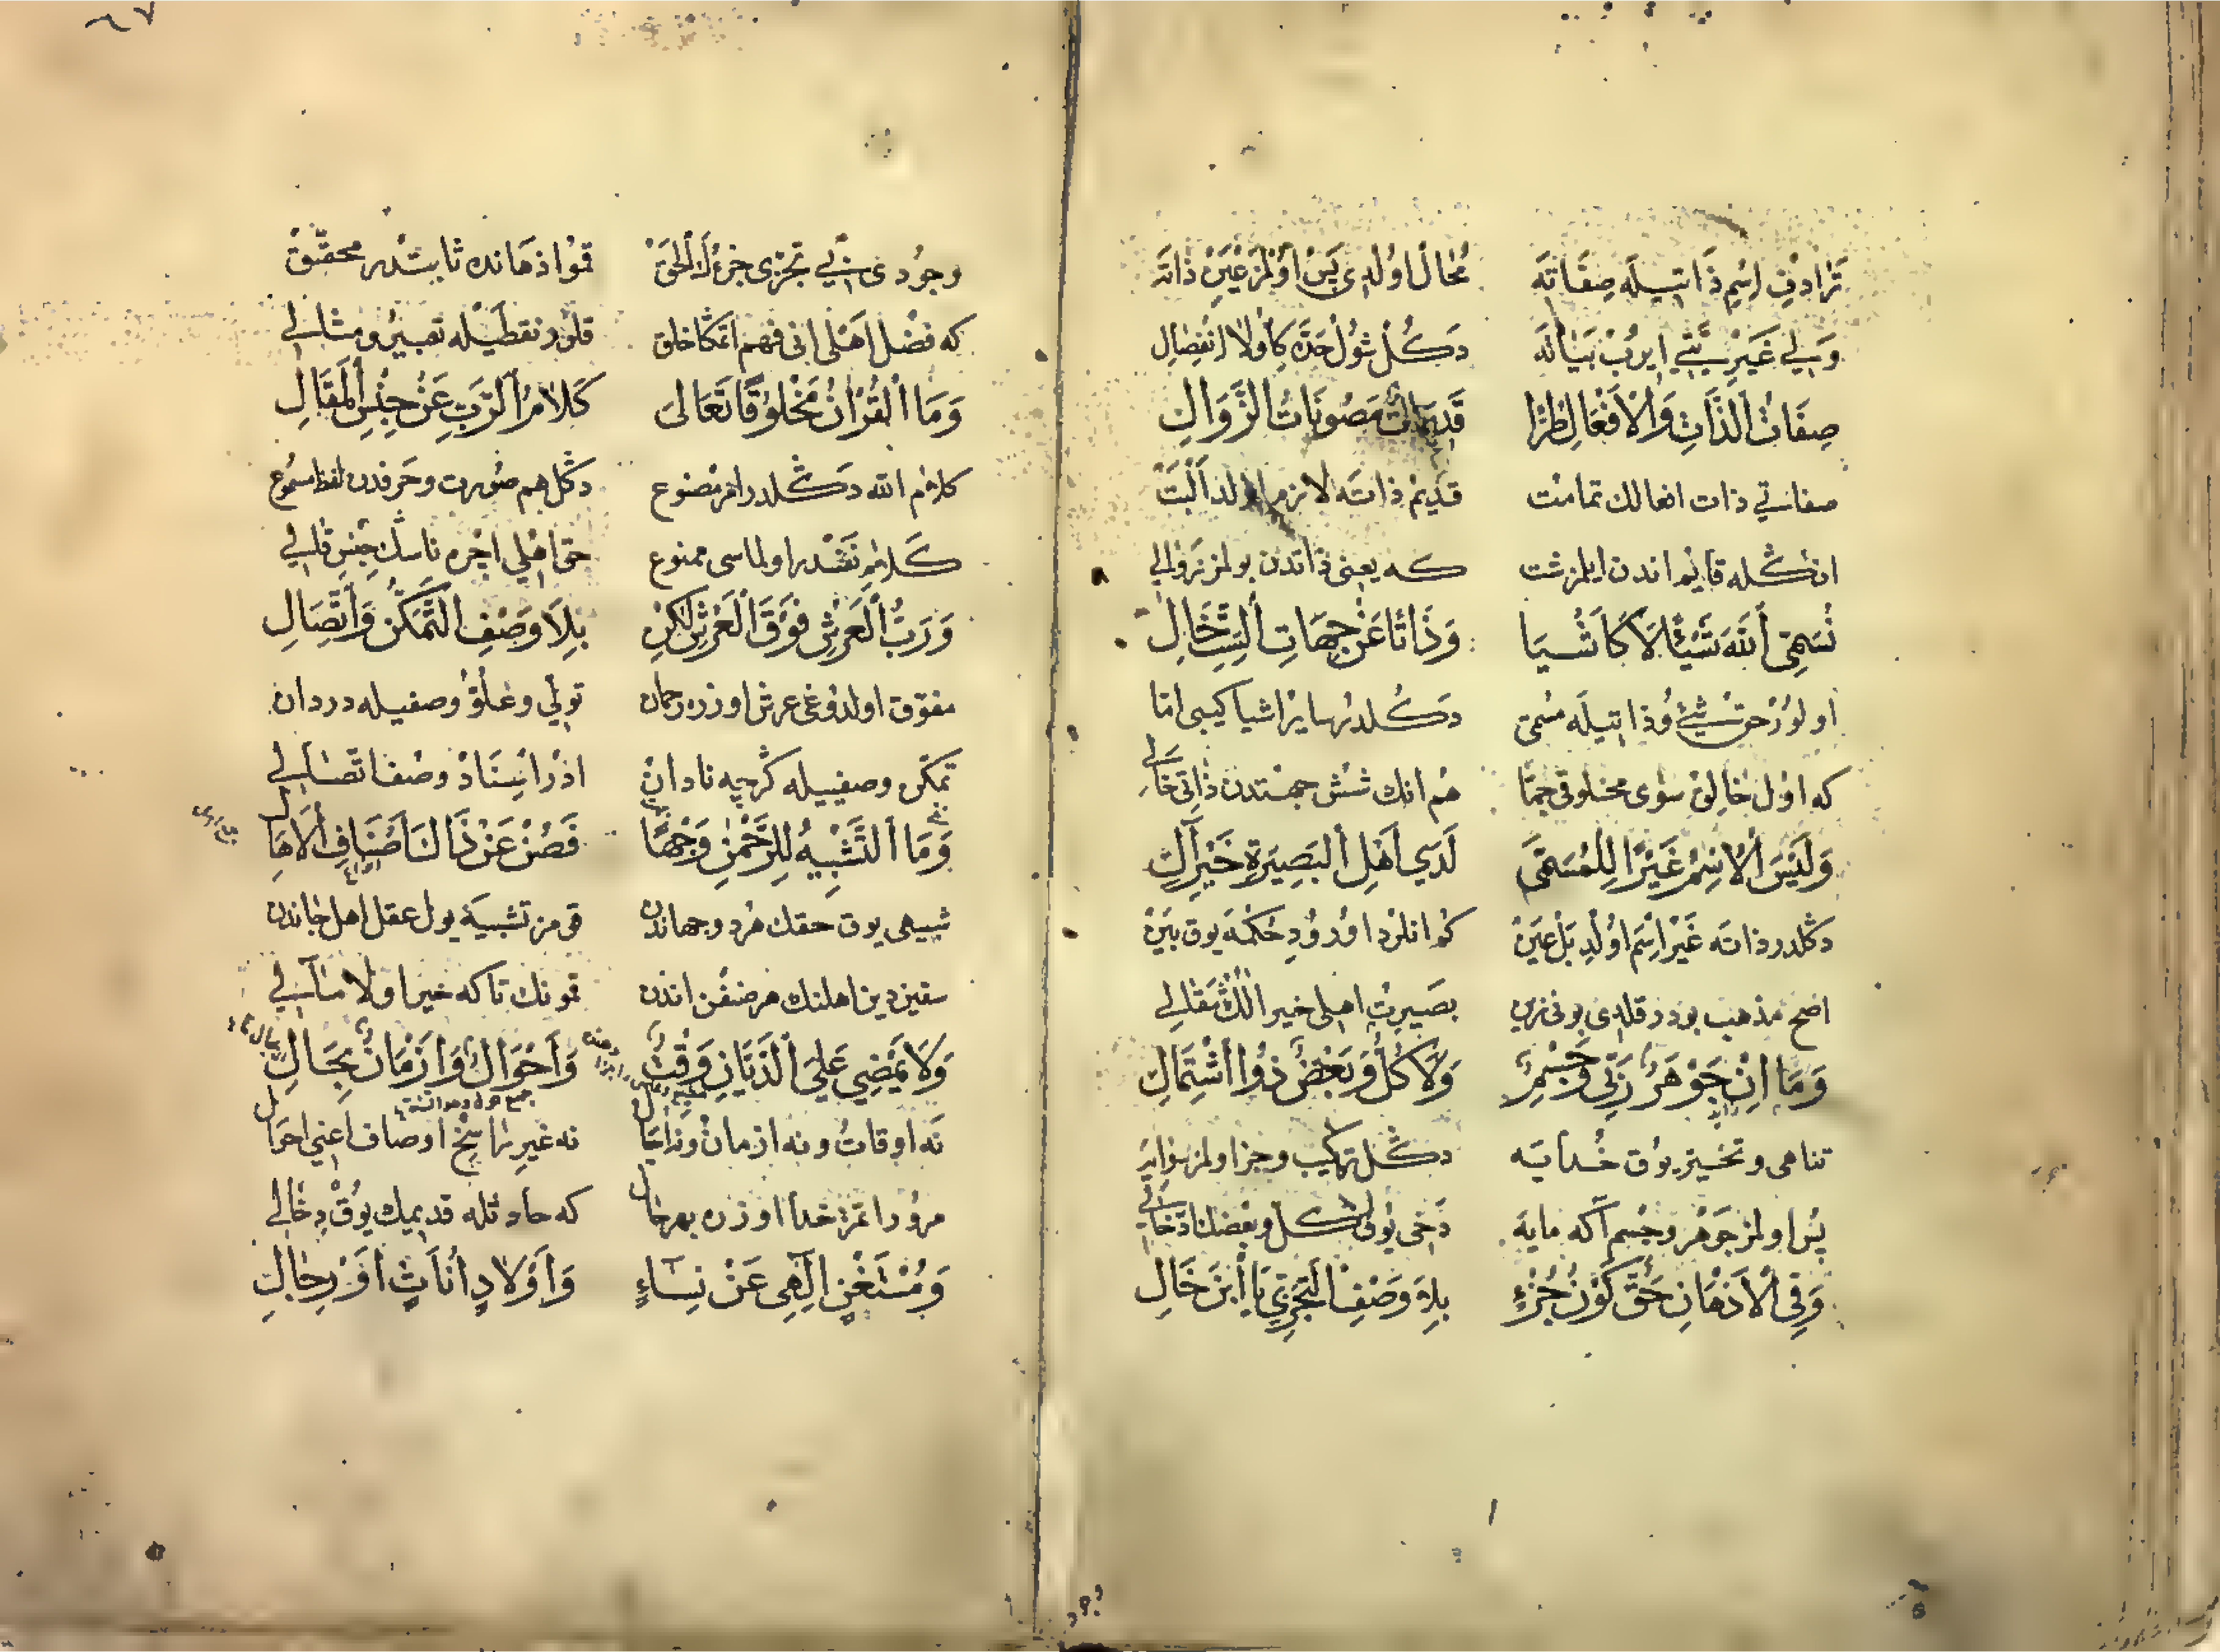 ترادف اسم ذاتيله صفاته محال اولدى پس اولمز غير ذاته
وبلي غير بيتي ايرب بيانه دكل شول حده كاولا انفصال
صِفَاتُ الذَّاتِ وَالْاَفْعَالِ طُرًّا قَدِيمَاتٌ مَصُونَاتُ الزَّوَالِ
صفاتي ذات افعالك تمامت قديم ذاته لازمدر اولد البت
انكله قائم اندن ايلمزشت كه يعني ذاتدن بولمز زوالي
نُسَمِّى اللهَ شَيْئًا لَا كَاَشْيَا وَذَاتًا عَنْ جِهَاتِ السِّتِّ خَالِ
اولور حق شيئ وذاتيله مسمى دكلدر ساير اشيا كيبى اما
كه اول خالق سوى مخلوقي جما هم انك شش جهتدن ذاتي خالي
وَلَيْسَ الْاِسْمُ غَيْرًا لِلْمُسَمَّى لَدَى اَهْلِ الْبَصِيرَةِ خَيْرِ آلِ
دكلدر ذاته غير اسم اولد بل عين كوانلرد اورود حكمه يوق بين
اصح مذهب بودر قلدى بونى زين بصيرت اهلى خير الك مقالي
وَمَا اِنْ جَوْهَرٌ رَبِّى وَجِسْمٌ وَلَا كُلٌّ وَبَعْضٌ ذُوا اشْتِمَالِ
تناهى وتحيز يوق خدايه دكل تركيب وجزا اولمز سوايه
پس اولمز جوهر وجسم آكه مايه دخى يوق كل وبعضك ادخالي
وَفِى الْاَذْهَانِ حَقٌّ كَوْنُ جُزْءٍ بِلَا وَصْفِ التَّجَزِّى يَا ابْنَ خَالِ
وجود
وجودى بي تجزى جزء الحق قمو اذهانده ثابتدر محقق
كه فضل اهلى انى فهم اتمكا خلق قلور نقطيله تعبير ومثالي
وَمَا الْقُرْاٰنُ مَخْلُوقًا تَعَالَى كَلَامُ الرَّبِّ عَنْ جِنْسِ الْمَقَالِ
كلام الله دكلدر امر مصنوع دكل هم صورت وحرفدن لفظ مسموع
كلام نقدر اولماسى ممنوع حق اهلي اجره ناسك جنس قالي
وَرَبُّ الْعَرْشِ فَوْقَ الْعَرْشِ لٰكِنْ بِلَا وَصْفِ التَّمَكُّنِ وَاتِّصَالِ
مفوق اولدوغى عرش اوزره رحمان تولي وعلو وصفيله در دان
تمكن وصفييله كرچه نادان ادر اسناد وصف اتصالي
وَمَا التَّشْبِيهُ لِلرَّحْمٰنِ وَجْهًا فَصُنْ عَنْ ذَاكَ اَصْنَافَ الْاَهَالِ
شبيهى يوق حقك هر دو جهاندن قومز تشبيه يول عقل اهل جاندن
سقين دين اهلنك هر صنفن اندن قمونك تا كه خير اولا مآلي
وَلَا يَمْضِى عَلَى الدَّيَّانِ وَقْتٌ وَاَحْوَالٌ وَاَزْمَانٌ بِحَالِ
نه اوقات و نه ازمان ونداحيال نه غير راسخ اوصاف اعني احوال
مرور اتمز خدا اوزره بهر حال كه حادثله قديمك يوق دخالي
وَمُسْتَغْنٍ اِلٰهِى عَنْ نِسَاءٍ وَاَوْلَادٍ اُنَاثٍ اَوْ رِجَالِ